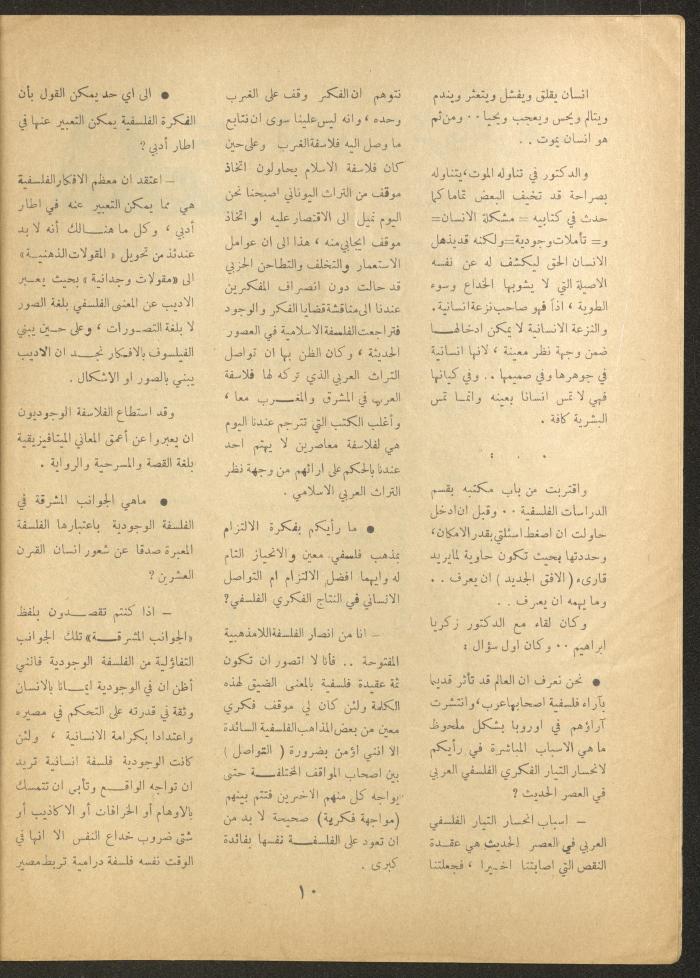 انسان يقلق ويفشل ويتعثر ويندم
ويتالم ويحس ويعجب ويحيا . . ومن ثم
هو انسان يموت . .
والدكتور في تناوله الموت، يتناوله
بصراحة قد تخيف البعض تماما كما
حدث في كتابيه = مشكلة الانسان=
و= تأملات وجودية=ولكنه قد يذهل
الانسان الحق ليكشف له عن نفسه
الاصيلة التي لا يشوبها الخداع وسوء
الطوية ، اذاً فهو صاحب نزعة انسانية .
والنزعة الانسانية لا يمكن ادخالهــا
ضمن وجهة نظر معينة ، لانها انسانية
في جوهرها وفي صميمها . . وفي كيانها
فهي لا تمس انسانا بعينه وانمــا تمس
البشرية كافة .
واقتربت من باب مكتبه بقسم
الدراسات الفلسفية . . وقبل ان ادخل
حاولت ان اضغط اسئلتي بقدر الامكان،
وحددتها بحيث تكون حاوية لما يريد
قارىء ( الافق الجديد ) ان يعرف . .
وما يهمه ان يعرف . .
وكان لقاء مع الدكتور زكريا
ابراهيم . . وكان اول سؤال :
● نحن نعرف ان العالم قد تأثر قديما
بآراء فلسفية اصحابها عرب، وانتشرت
آراؤهم في اوروبا بشكل ملحوظ
ما هي الاسباب المباشرة في رأيكم
لانحسار التيار الفكري الفلسفي العربي
في العصر الحديث ؟
— اسباب انحسار التيار الفلسفي
العربي في العصر الحديث هي عقــدة
النقص التي اصابتنا اخــيرا ، فجعلتنا
نتوهم ان الفكر وقف على الغرب
وحده ، وانه ليس علينا سوى ان نتابع
ما وصل اليه فلاسفة الغرب وعلى حين
كان فلاسفة الاسلام يحاولون اتخاذ
موقف من التراث اليوناني اصبحنا نحن
اليوم نميل الى الاقتصار عليه او اتخاذ
موقف ايجابي منه ، هذا الى ان عوامل
الاستعمار والتخلف والتطاحن الحزبي
قد حالت دون انصراف المفكرين
عندنا الى مناقشة قضايا الفكر والوجود
فتراجعت الفلسفة الاسلامية في العصور
الحديثة ، وكان الظن بها ان تواصل
التراث العربي الذي تركه لها فلاسفة
العرب في المشرق والمغــرب معا ،
وأغلب الكتب التي تترجم عندنا اليوم
هي لفلاسفة معاصرين لا يهتم احد
عندنا بالحكم على ارائهم من وجهة نظر
التراث العربي الاسلامي .
● ما رأيكم بفكرة الالتزام
بمذهب فلسفي معين والانحياز التام
له وايهما افضل الالتزام ام التواصل
الانساني في النتاج الفكري الفلسفي؟
— انا من انصار الفلسفة اللامذهبية
المفتوحة . . فأنا لا اتصور ان تكون
ثمة عقيدة فلسفية بالمعنى الضيق لهذه
الكلمة ولئن كان لي موقف فكري
معين من بعض المذاهب الفلسفية السائدة
الا انني اؤمن بضرورة ( التواصل )
بين اصحاب المواقف المختلفــة حتى
يواجه كل منهم الاخرين فتتم بينهم
(مواجهة فكرية) صحيحة لا بد من
ان تعود على الفلسفــة نفسها بفائدة
كبرى .
● الى اي حد يمكن القول بأن
الفكرة الفلسفية يمكن التعبير عنها في
اطار أدبي ؟
— اعتقد ان معظم الافكار الفلسفية
هي مما يمكن التعبير عنه في اطار
أدبي ، وكل ما هنــالك أنه لا بد
عندئذ من تحويل « المقولات الذهنيــة »
الى «مقولات وجدانية » بحيث يعــبر
الاديب عن المعنى الفلسفي بلغة الصور
لا بلغة التصــورات ، وعلى حــين يبني
الفيلسوف بالافكار نجــد ان الاديب
يبني بالصور او الاشكال .
وقد استطاع الفلاسفة الوجوديون
ان يعبروا عن أعمق المعاني الميتافيزيقية
بلغة القصة والمسرحية والرواية .
● ماهي الجوانب المشرقة في
الفلسفة الوجودية باعتبارها الفلسفة
المعبرة صدقا عن شعور انسان القرن
العشرين ؟
— اذا كنتم تقصــدون بلفظ
«الجوانب المشرقــة» تلك الجوانب
التفاؤلية من الفلسفة الوجودية فانني
أظن ان في الوجودية ايمــانا بالانسان
وثقة في قدرته على التحكم في مصيره
واعتدادا بكرامة الانسانية ، ولئن
كانت الوجودية فلسفة انسانية تريد
ان تواجه الواقــع وتأبى ان تتمسك
بالاوهام أو الخرافات أو الاكاذيب أو
شتى ضروب خداع النفس الا انها في
الوقت نفسه فلسفة درامية تربط مصير
١٠